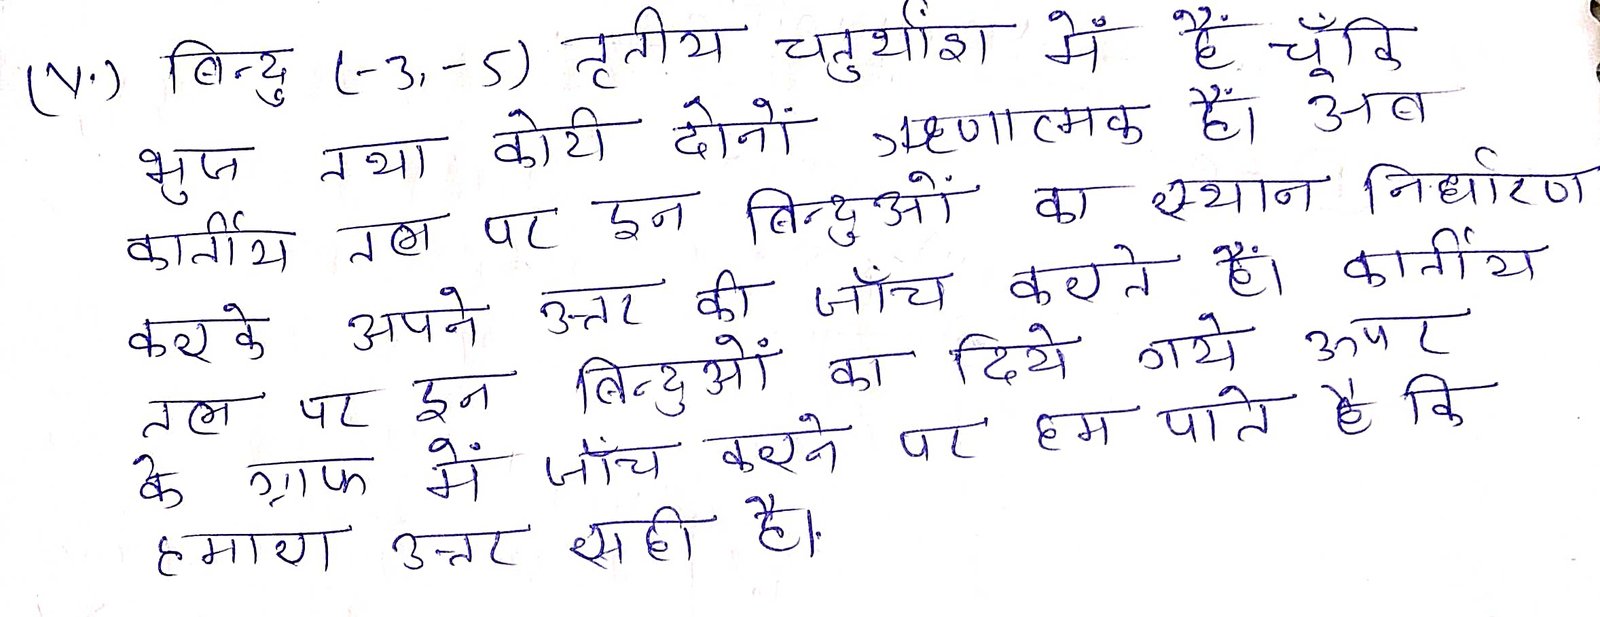 (v.) बिन्दु (-3,-5) तृतीय चतुर्थांश में हैं चूँकि
भुज तथा कोटी दोनों ऋणात्मक हैं। अब
कार्तीय तल पर इन बिन्दुओं का स्थान निर्धारण
करके अपने उत्तर की जाँच करते हैं। कार्तीय
तल पर इन बिन्दुओं का दिये गये ऊपर
के ग्राफ में जाँच करने पर हम पाते है कि
हमारा उत्तर सही है।